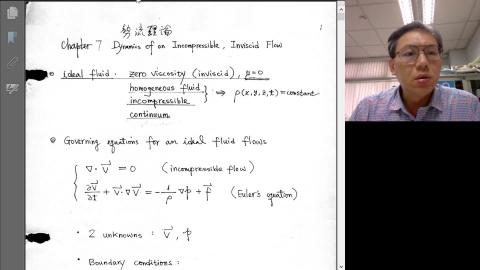 勢流理論
1
Chapter 7 Dynamics of an Incompressible, Inviscid Flow
ideal fluid : zero viscosity (inviscid), μ=0
homogeneous fluid
incompressible } ⇒ ρ(x,y,z,t) = constant
continuum
Governing equations for an ideal fluid flows
∇·V⃗ = 0 (incompressible flow)
∂V⃗/∂t + V⃗·∇V⃗ = -1/ρ ∇p + f⃗ (Euler's equation)
• 2 unknowns : V⃗, p
• Boundary conditions :